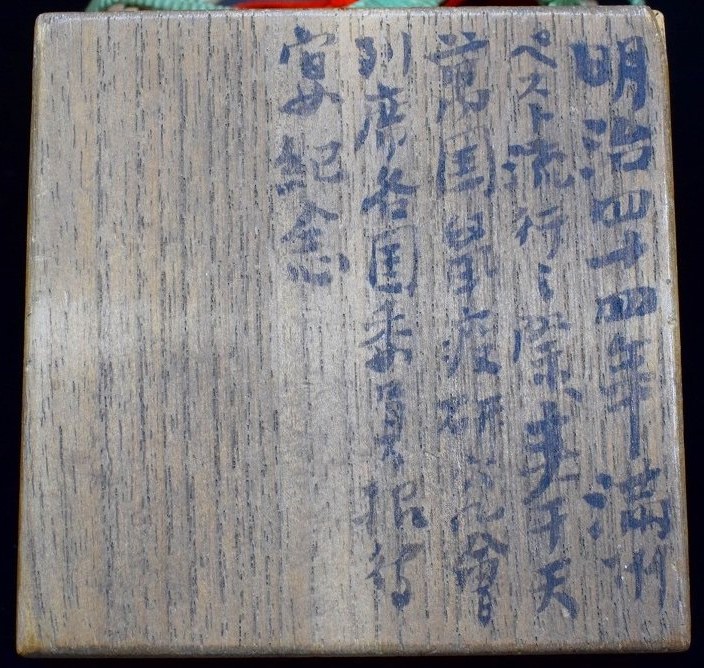 明治四十四年満州
ペスト流行之際奉天
萬国鼠疫研究會
列席各国委員招待
宴紀念